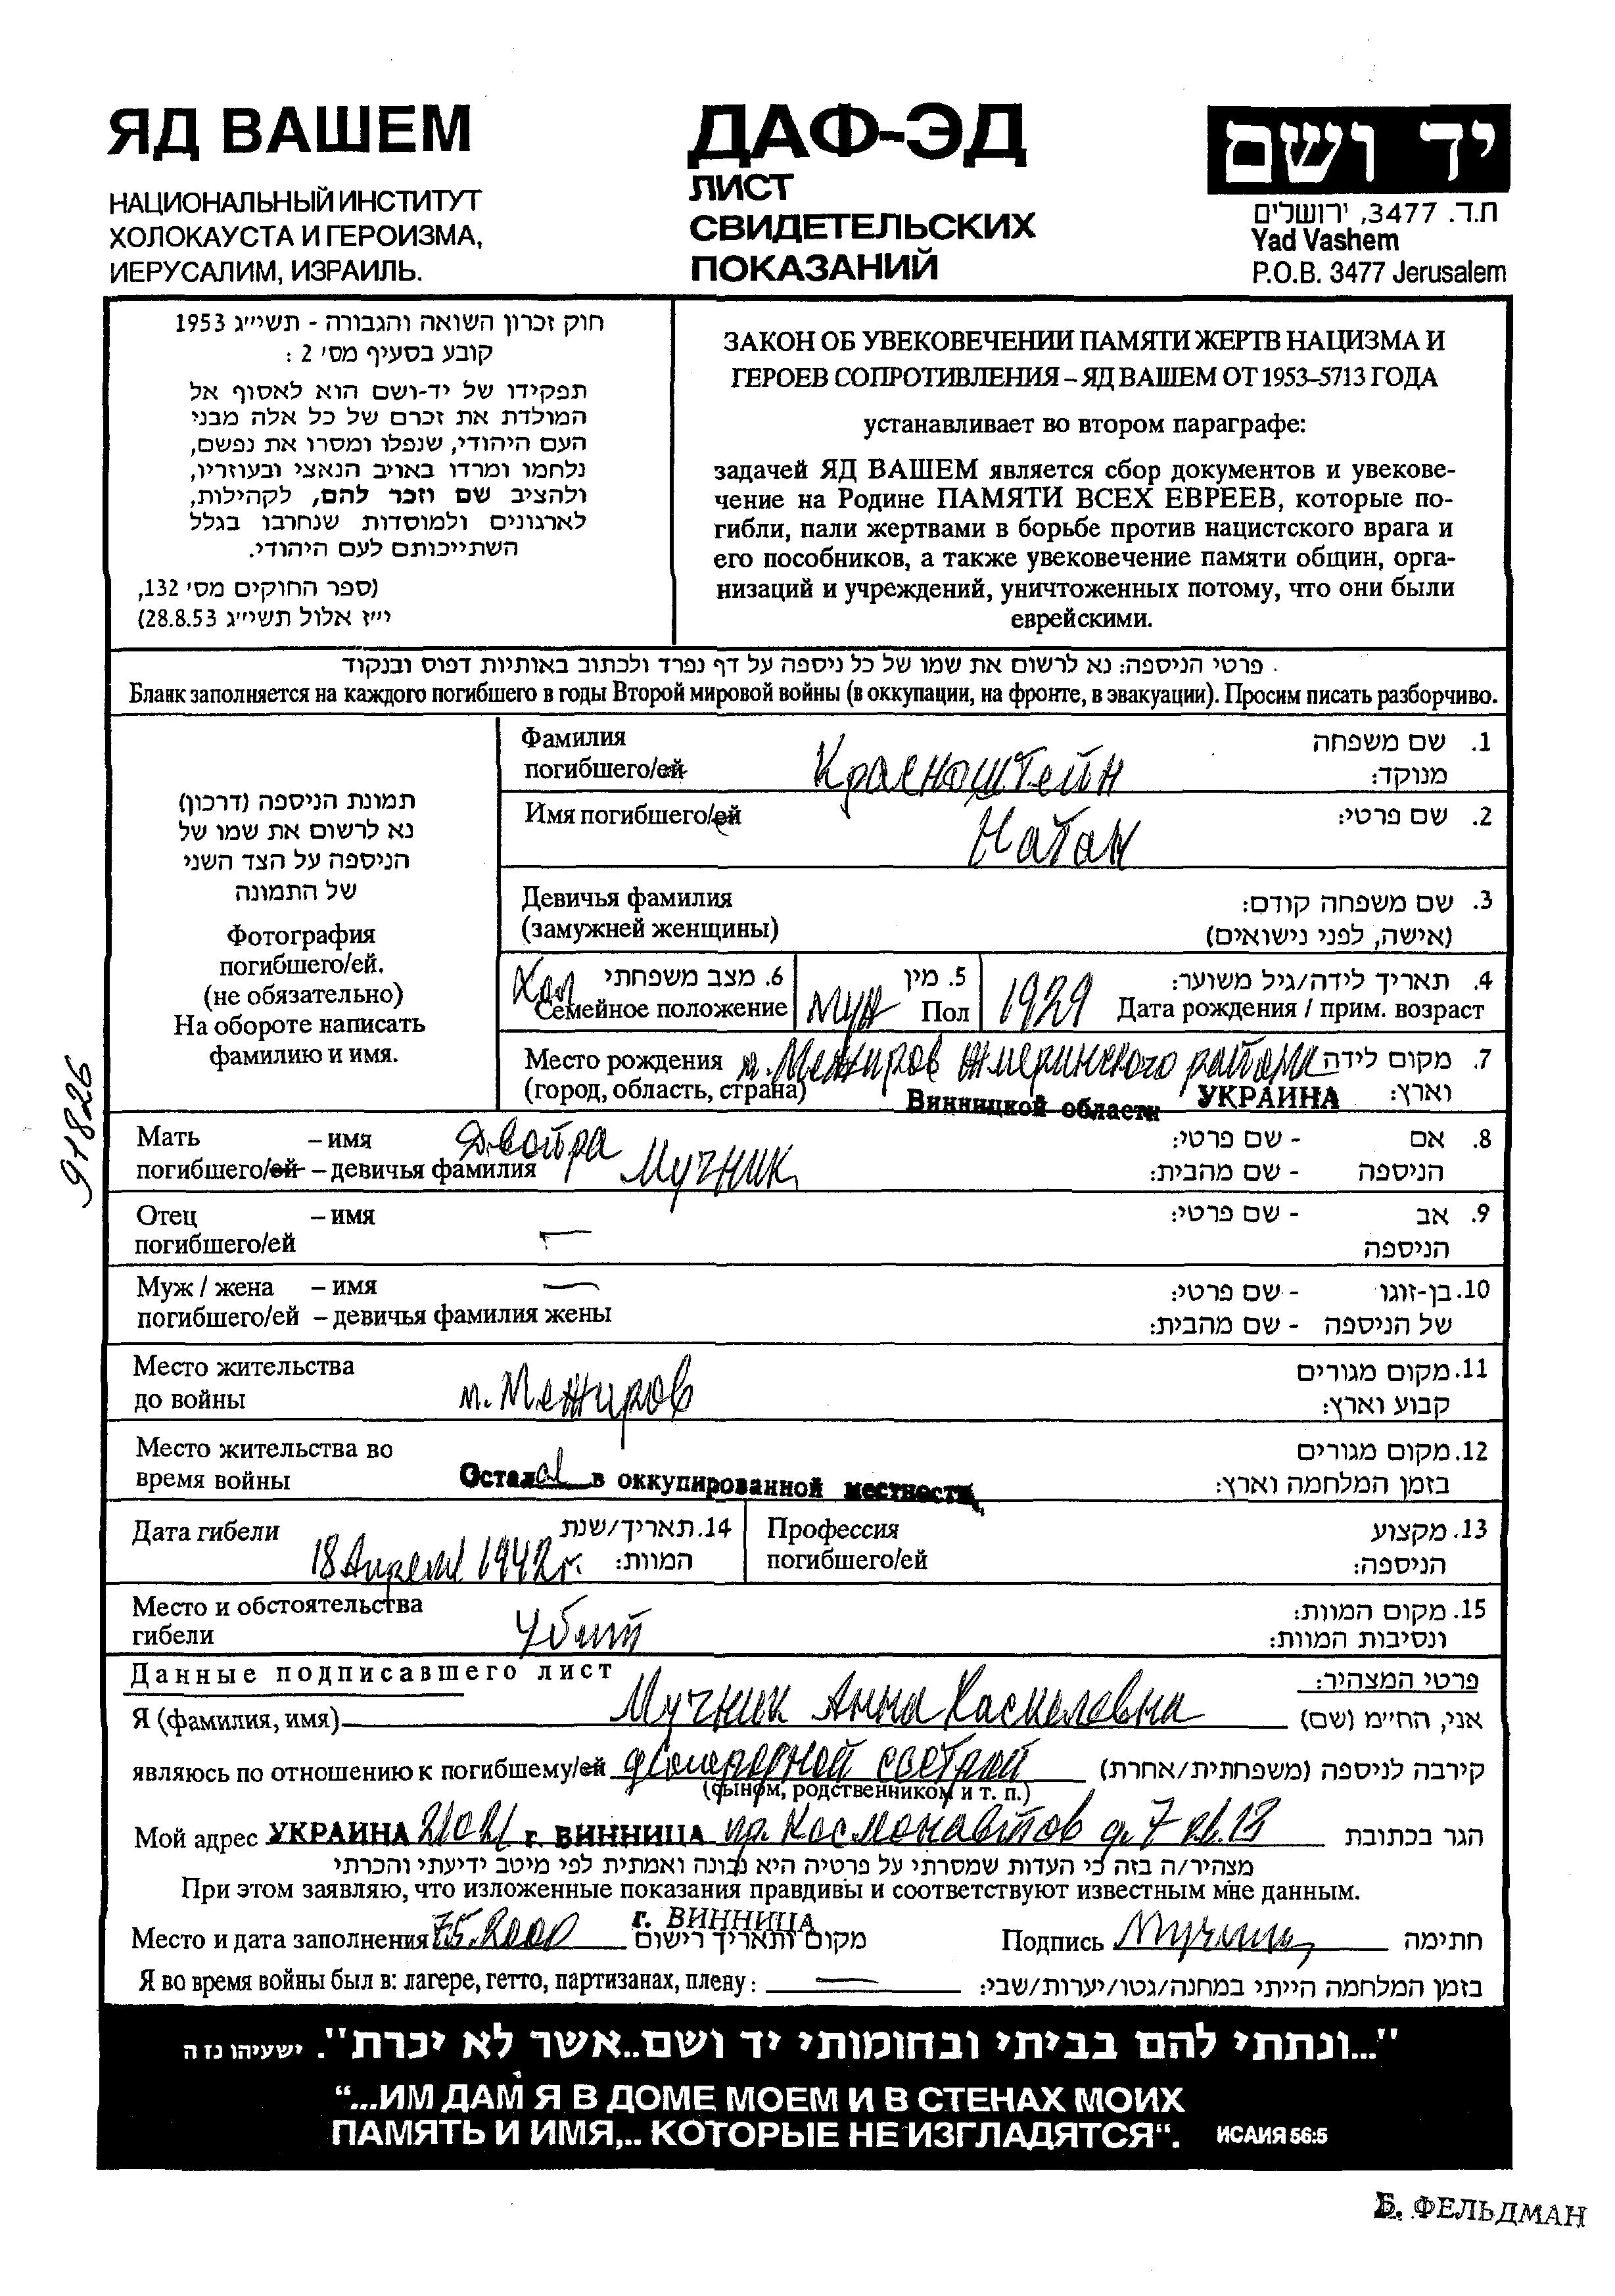 ЯД ВАШЕМ
НАЦИОНАЛЬНЫЙ ИНСТИТУТ
ХОЛОКАУСТА И ГЕРОИЗМА,
ИЕРУСАЛИМ, ИЗРАИЛЬ.
ДАФ-ЭД
ЛИСТ
СВИДЕТЕЛЬСКИХ
ПОКАЗАНИЙ
יד ושם
ת.ד. 3477, ירושלים
Yad Vashem
P.O.B. 3477 Jerusalem
חוק זכרון השואה והגבורה - תשי״ג 1953
קובע בסעיף מס׳ 2 :
תפקידו של יד-ושם הוא לאסוף אל
המולדת את זכרם של כל אלה מבני
העם היהודי, שנפלו ומסרו את נפשם,
נלחמו ומרדו באויב הנאצי ובעוזריו,
ולהציב שם וזכר להם, לקהילות,
לארגונים ולמוסדות שנחרבו בגלל
השתייכותם לעם היהודי.
(ספר החוקים מס׳ 132,
י״ז אלול תשי״ג 28.8.53)
ЗАКОН ОБ УВЕКОВЕЧЕНИИ ПАМЯТИ ЖЕРТВ НАЦИЗМА И
ГЕРОЕВ СОПРОТИВЛЕНИЯ – ЯД ВАШЕМ ОТ 1953–5713 ГОДА
устанавливает во втором параграфе:
задачей ЯД ВАШЕМ является сбор документов и увекове-
чение на Родине ПАМЯТИ ВСЕХ ЕВРЕЕВ, которые по-
гибли, пали жертвами в борьбе против нацистского врага и
его пособников, а также увековечение памяти общин, орга-
низаций и учреждений, уничтоженных потому, что они были
еврейскими.
פרטי הניספה: נא לרשום את שמו של כל ניספה על דף נפרד ולכתוב באותיות דפוס ובנקוד
Бланк заполняется на каждого погибшего в годы Второй мировой войны (в оккупации, на фронте, в эвакуации). Просим писать разборчиво.
תמונת הניספה (דרכון)
נא לרשום את שמו של
הניספה על הצד השני
של התמונה
Фотография
погибшего/ей.
(не обязательно)
На обороте написать
фамилию и имя.
91826
Фамилия Красноштейн 1. שם משפחה
погибшего/ей מנוקד:
Имя погибшего/ей Натан 2. שם פרטי:
Девичья фамилия 3. שם משפחה קודם:
(замужней женщины) (אישה, לפני נישואים)
Хол 6. מצב משפחתי 5. מין 4. תאריך לידה/גיל משוער:
Семейное положение муж Пол 1929 Дата рождения / прим. возраст
Место рождения м. Межиров Жмеринского района 7. מקום לידה
(город, область, страна) Винницкой области УКРАИНА וארץ:
Мать – имя Двойра 8. אם - שם פרטי:
погибшего/ей – девичья фамилия Мучник הניספה - שם מהבית:
Отец – имя — 9. אב - שם פרטי:
погибшего/ей הניספה
Муж / жена – имя — 10. בן-זוגו - שם פרטי:
погибшего/ей – девичья фамилия жены של הניספה - שם מהבית:
Место жительства м. Межиров 11. מקום מגורים
до войны קבוע וארץ:
Место жительства во 12. מקום מגורים
время войны Остался в оккупированной местности בזמן המלחמה וארץ:
Дата гибели 18 Апреля 1942 г. 14. תאריך/שנת המוות:
Профессия 13. מקצוע
погибшего/ей הניספה:
Место и обстоятельства Убит 15. מקום המוות:
гибели ונסיבות המוות:
Данные подписавшего лист פרטי המצהיר:
Я (фамилия, имя) Мучник Анна Хаскелевна אני, החי״מ (שם)
являюсь по отношению к погибшему/ей двоюродной сестрой קירבה לניספה (משפחתית/אחרת)
(сыном, родственником и т. п.)
Мой адрес УКРАИНА 21021 г. ВИННИЦА пр. Космонавтов д. 7 кв. 13 הגר בכתובת
מצהיר/ה בזה כי העדות שמסרתי על פרטיה היא נכונה ואמתית לפי מיטב ידיעתי והכרתי
При этом заявляю, что изложенные показания правдивы и соответствуют известным мне данным.
г. ВИННИЦА
Место и дата заполнения 7.5.2000 מקום ותאריך רישום Подпись Мучник חתימה
Я во время войны был в: лагере, гетто, партизанах, плену: — בזמן המלחמה הייתי במחנה/גטו/יערות/שבי:
"...ונתתי להם בביתי ובחומותי יד ושם..אשר לא יכרת". ישעיהו נז ה
“...ИМ ДАМ Я В ДОМЕ МОЕМ И В СТЕНАХ МОИХ
ПАМЯТЬ И ИМЯ,.. КОТОРЫЕ НЕ ИЗГЛАДЯТСЯ“. ИСАИЯ 56:5
Б. ФЕЛЬДМАН